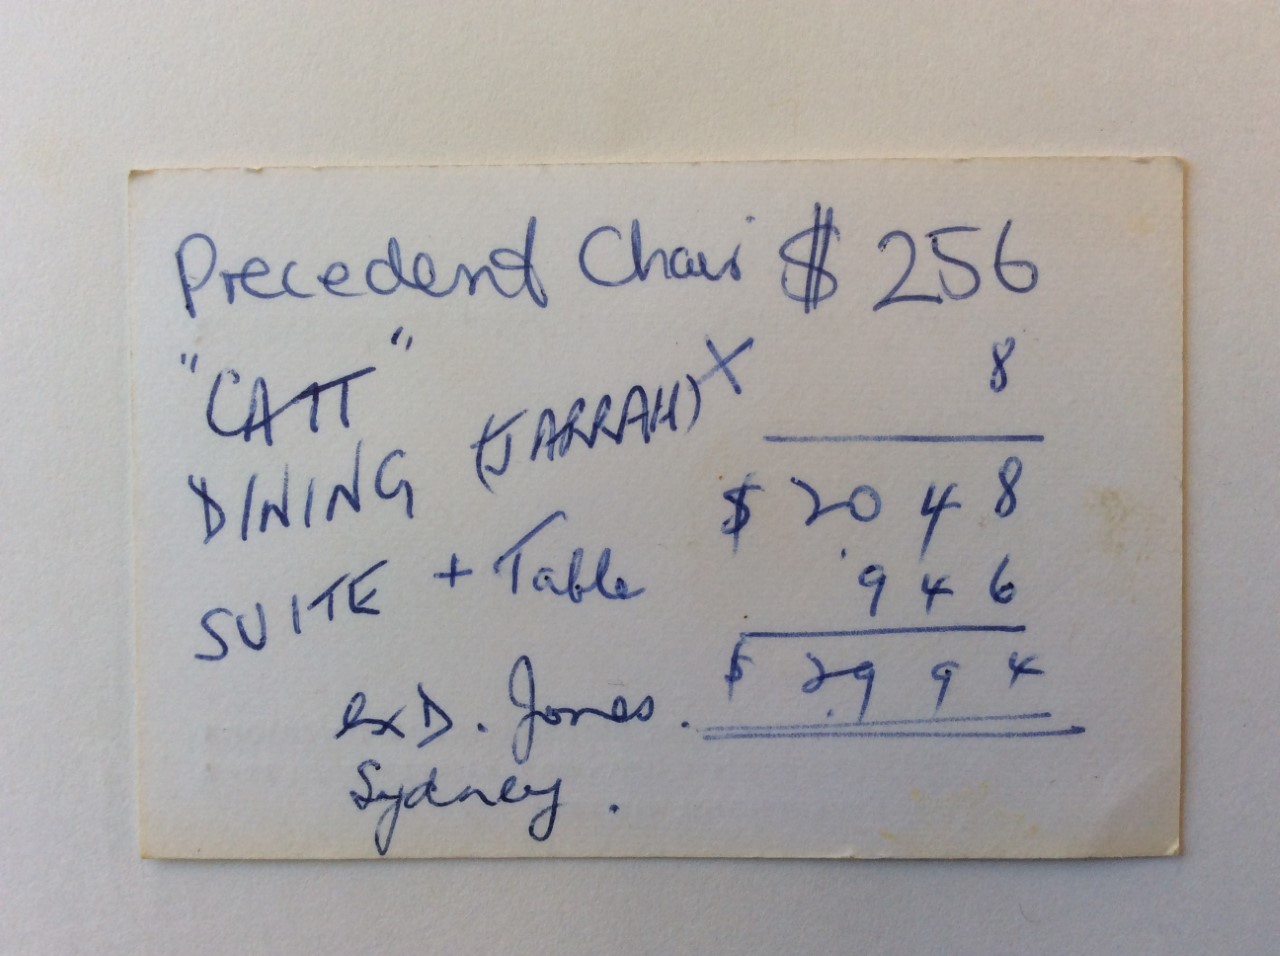 Precedent Chair $ 256
"CATT" (JARRAH) X 8
DINING $ 2048
SUITE + Table 946
$ 2994
ex D. Jones.
Sydney.